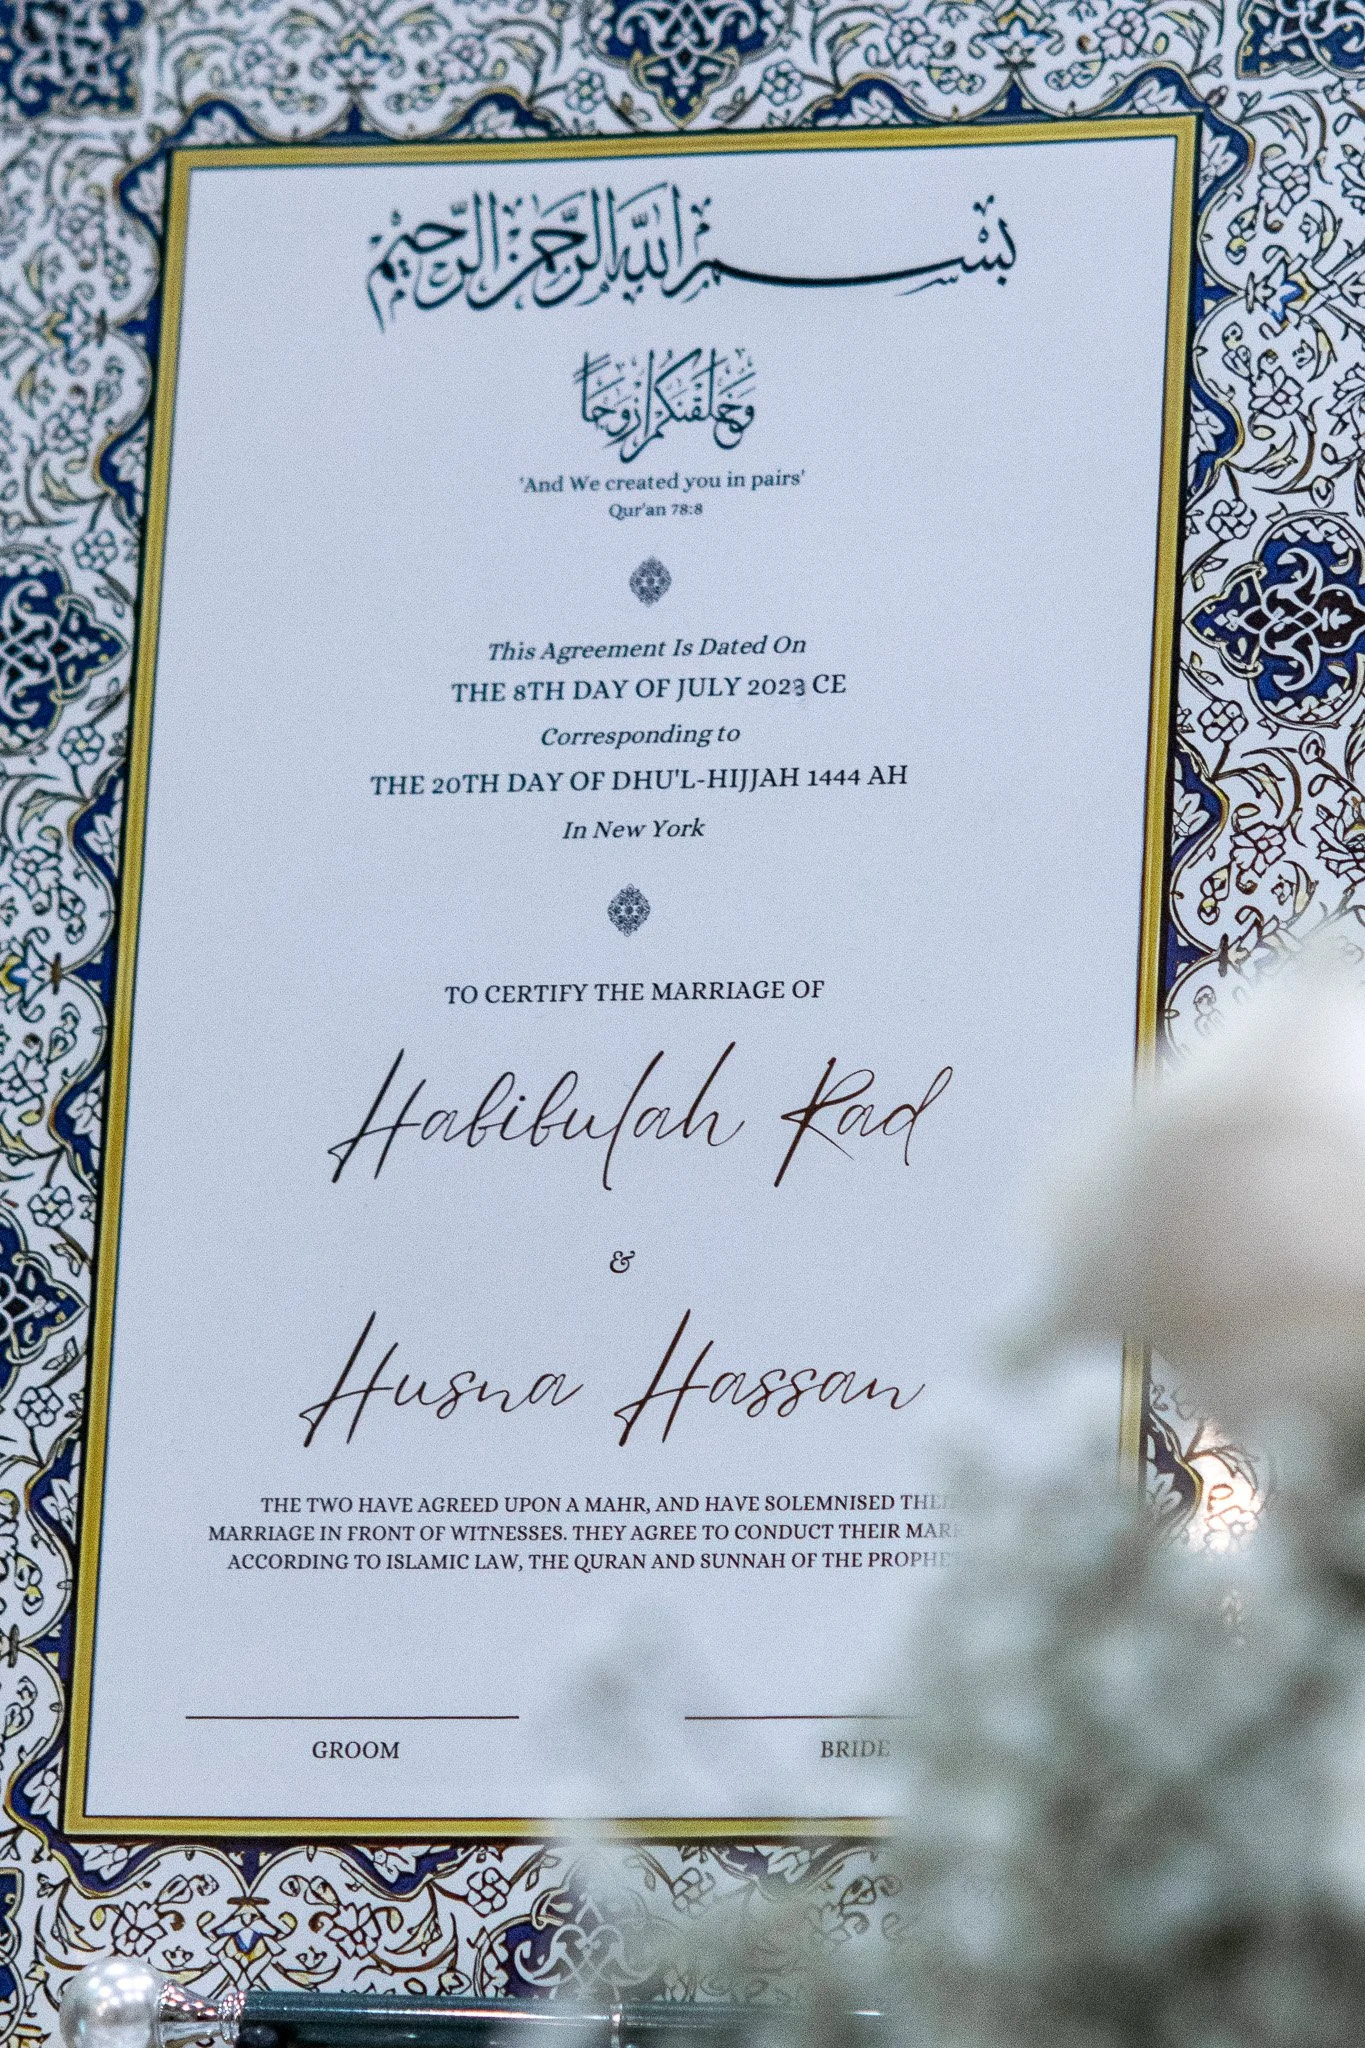 بسم الله الرحمن الرحيم
وَخَلَقْنَكُمْ أَزْوَجًا
'And We created you in pairs'
Qur'an 78:8
This Agreement Is Dated On
THE 8TH DAY OF JULY 2023 CE
Corresponding to
THE 20TH DAY OF DHU'L-HIJJAH 1444 AH
In New York
TO CERTIFY THE MARRIAGE OF
Habibulah Rad
&
Husna Hassan
THE TWO HAVE AGREED UPON A MAHR, AND HAVE SOLEMNISED
MARRIAGE IN FRONT OF WITNESSES. THEY AGREE TO CONDUCT THEIR
ACCORDING TO ISLAMIC LAW, THE QURAN AND SUNNAH OF THE
GROOM
BRIDE